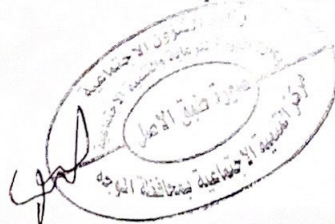 وزارة الشؤون الاجتماعية
صورة طبق الأصل
مركز التنمية الاجتماعية بمحافظة الوجه